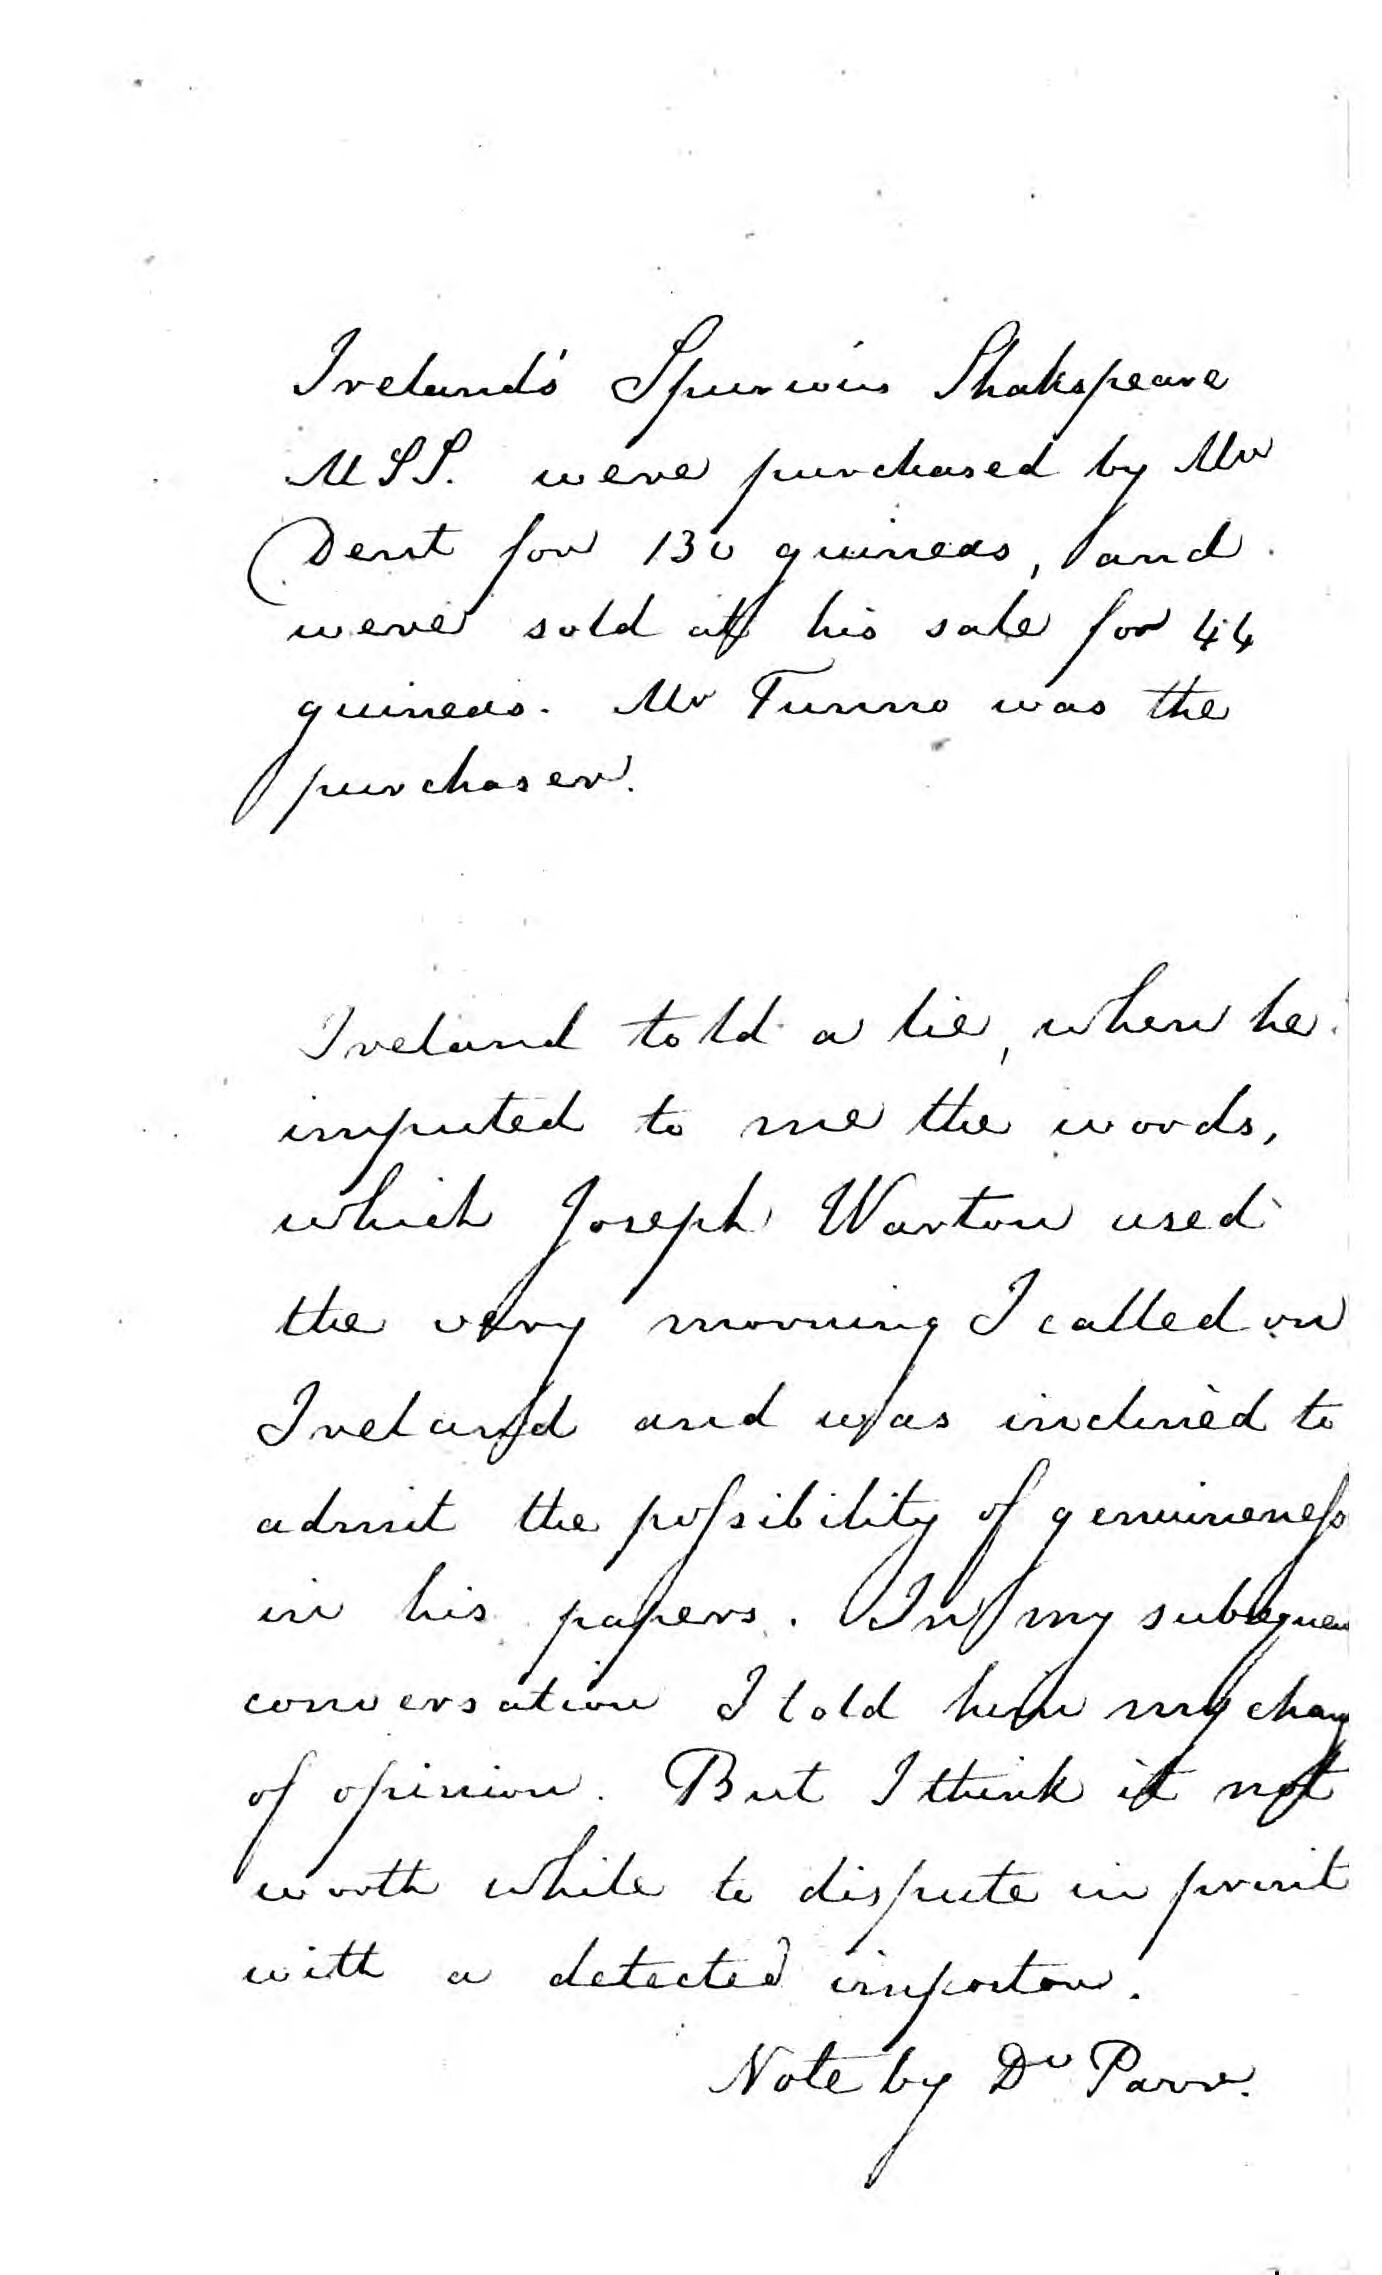 Ireland's Spurious Shakspeare
MSS. were purchased by Mr
Dent for 130 guineas, and
were sold at his sale for 44
guineas. Mr Tunno was the
purchaser.
Ireland told a lie, when he
imputed to me the words,
which Joseph Warton used
the very morning I called on
Ireland and was inclined to
admit the poſsibility of genuineneſs
in his papers. In my subsequen
conversation I told him my chang
of opinion. But I think it not
worth while to dispute in print
with a detected impostor.
Note by Dr Parr.